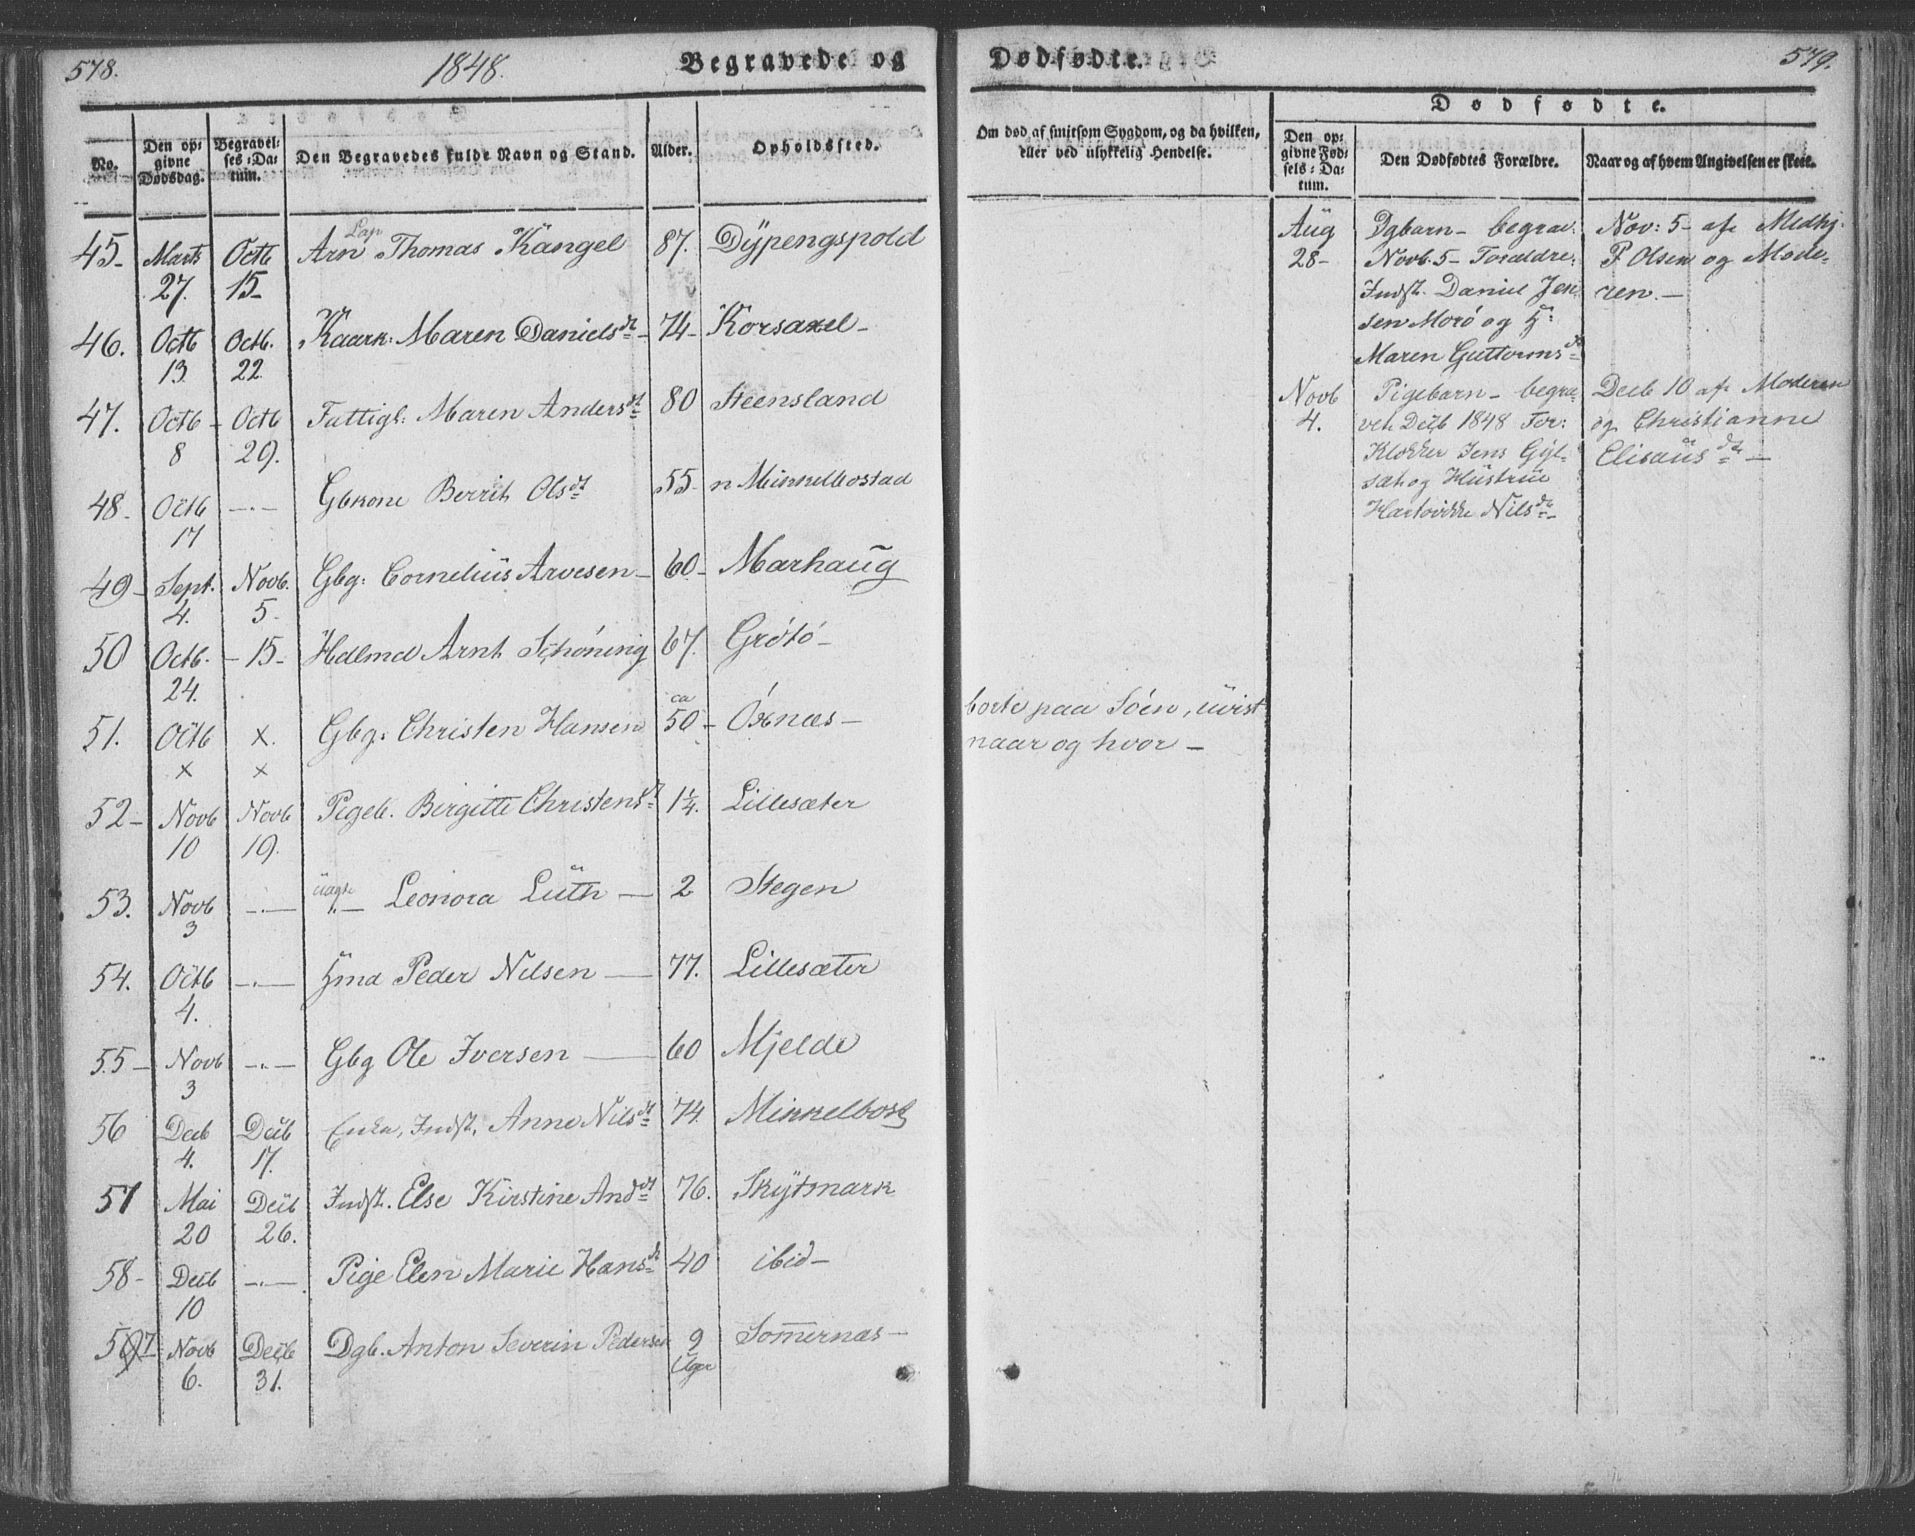 578.
1848.
Begravede og
No.
Den op-
givne
Dødsdag.
Begravel-
ses-Da-
tum.
Den Begravedes fulde Navn og Stand.
Alder.
Opholdssted.
45- Marts 27. Octb 15- Arn Lap Thomas Kangel 87. Dÿpengspold
46. Octb 13 Octb. 22 Kaark: Maren Danielsdt- 74- Korsaxel-
47. Octb 8 - Octb 29. Fattigl: Maren Andersdt 80 Steensland
48- Octb 17 -.- Gbkone Berrit Olsdt 55- n Minkelbostad
49- Sept. 4. Novb. 5- Gbg: Cornelius Arvesen- 60- Marhaug
50 Octb. 24. - 15- Arnt Schöning 67. Grøtö-
51. Octb x x. x Gbg: Christen Hansen ca 50- Öxnæs-
52- Novb 10 Novb 19. Pigeb. Birgitte Christensdt 1¼. Lillesæter
53. Novb 3 -.- Leonora Lüth- 2 Stegen
54. Octb 4. -.- Peder Nilsen- 77. Lillesæter
55- Novb 3 -.- Gbg Ole Iversen- 60 Mjelde
56 Decb 4. Decb 17. Enke, Indst. Anne Nilsdt 74. Minkelbost
57 Mai 20 Decb 26. Indst. Else Kirstine Anddt 76. Skÿtmark
58- Decb 10 -.- Pige Elen Marie Hansdt 40 ibid-
59 Novb 6. Decb 31. Dgb. Anton Severin Pedersen 9 Uger Somernæs-
Dødfødte.
579.
Om død af smitsom Sygdom, og da hvilken,
eller ved ulykkelig Hendelse.
Dødfødte.
Den op-
givne Fød-
sels-Da-
tum.
Den Dødfødtes Forældre.
Naar og af hvem Angivelsen er skeet.
borte paa Söen, uvist
naar og hvor-
Aug
28-
Dgbarn- begrav:
Novb. 5- Forældre:
Indst. Daniel Jen
sen Morö og H:
Maren Guttormsdt
Nov: 5- af Medhj.
P Olsen og Mode-
ren.-
Novb
4.
Pigebarn- begra-
vet Decb 1848 For:
Klokker Jens Gÿl-
sæt og Hustrue
Hartvikke Nilsdt-
Decb 10 af Moderen
og Christianne
Elisæusdt-